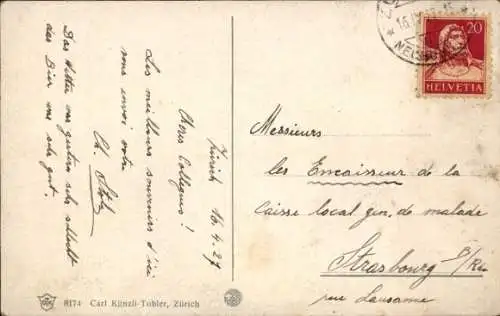 Zürich 16.4.27
Chers Collegues!
Les meilleurs souvenirs d'ici
vous envoi votre
Ch.
Das Wetter war gestern sehr schlecht
das Bier war sehr gut
20
HELVETIA
Messieurs
les Encaisseur de la
Caisse local gen. de malade
Strasbourg
par Lausanne
8174 Carl Künzli-Tobler, Zürich